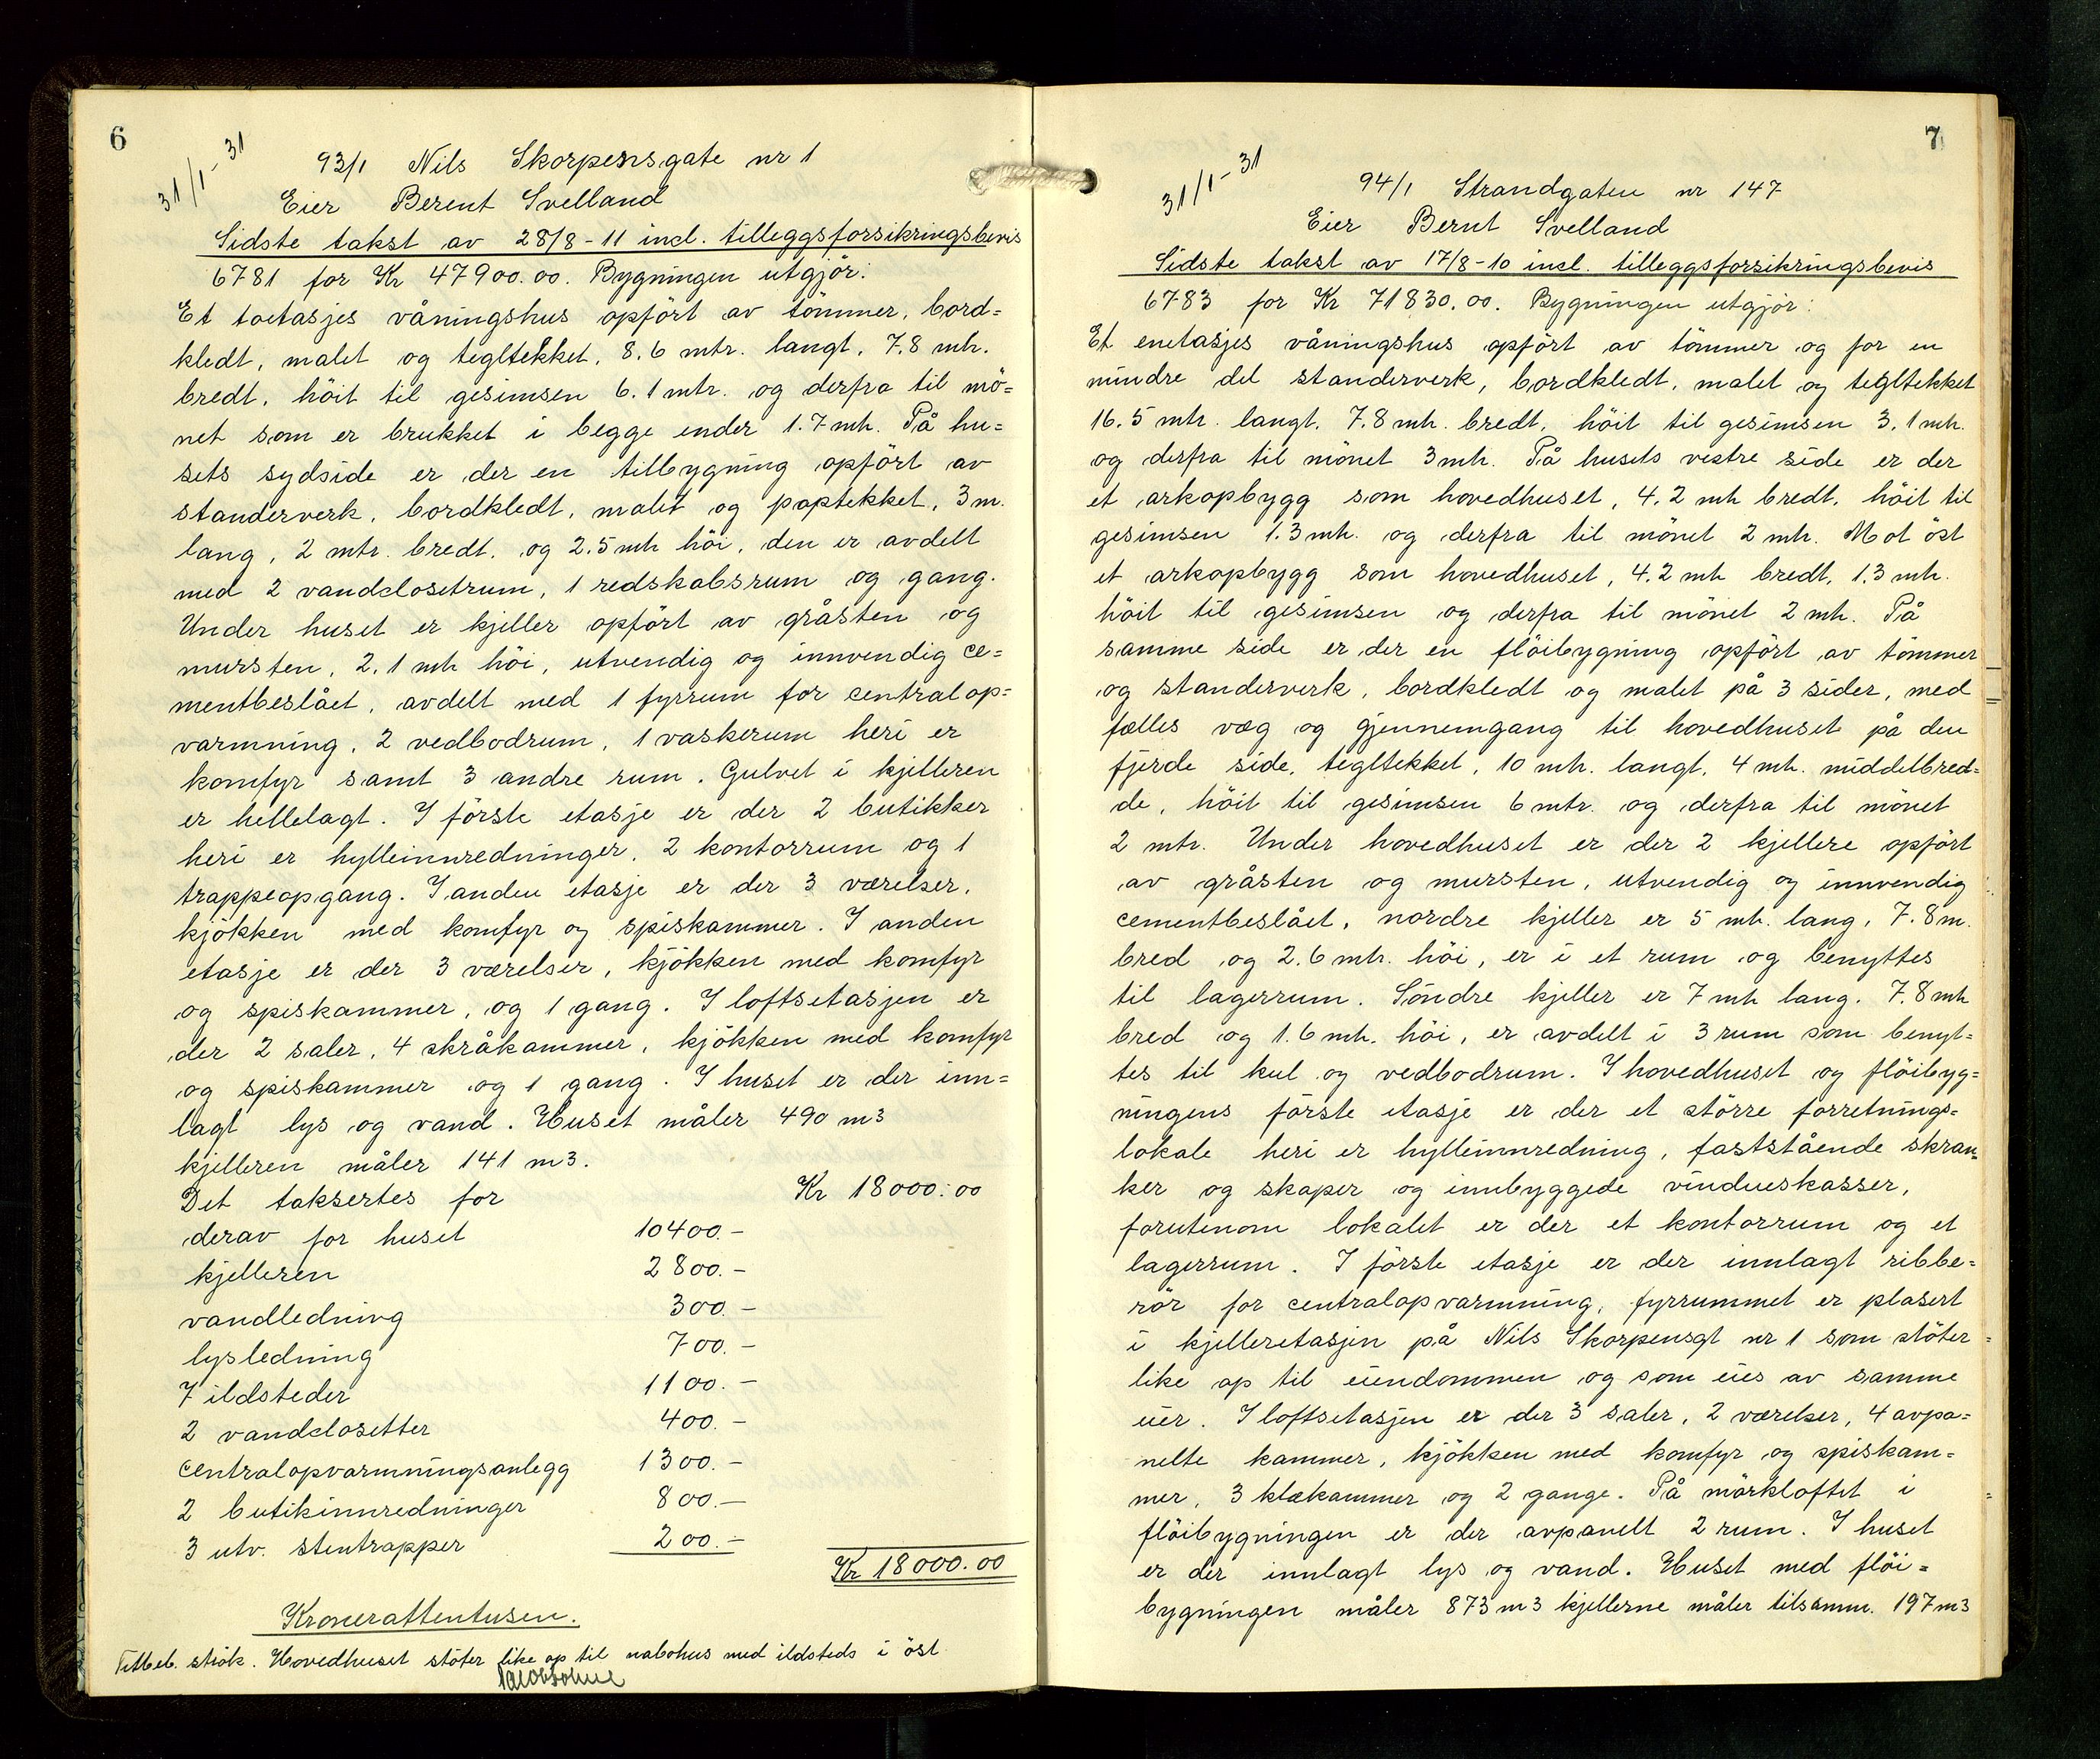 6
31/1-31
93/1 Nils Skorpensgate nr 1
Eier Berent Svelland
Sidste takst av 28/8-11 incl. tilleggsforsikringsbevis
6781 for Kr 47900.00. Bygningen utgjör:
Et toetasjes våningshus opfört av tömmer, bord=
kledt, malet og tegltekket, 8.6 mtr. langt, 7.8 mtr.
bredt, höit til gesimsen 6.1 mtr. og derfra til mö=
net som er brukket i begge ender 1.7 mtr. På hu=
sets sydside er der en tilbygning opfört av
standerverk, bordkledt, malet og paptekket, 3 m.
lang, 2 mtr. bredt, og 2.5 mtr höi, den er avdelt
med 2 vandclosetrum, 1 redskabsrum og gang.
Under huset er kjeller opfört av gråsten og
mursten, 2.1 mtr höi, utvendig og innvendig ce=
mentbeslået, avdelt med 1 fyrrum for centralop=
varmning, 2 vedbodrum, 1 vaskerum heri er
komfyr samt 3 andre rum. Gulvet i kjelleren
er hellelagt. I förste etasje er der 2 butikker
heri er hylleinnredninger, 2 kontorrum og 1
trappeopgang. I anden etasje er der 3 værelser,
kjökken med komfyr og spiskammer. I anden
etasje er der 3 værelser, kjökken med komfyr
og spiskammer, og 1 gang. I loftsetasjen er
der 2 saler, 4 skråkammer, kjökken med komfyr
og spiskammer og 1 gang. I huset er der inn=
lagt lys og vand. Huset måler 490 m3
kjelleren måler 141 m3.
Det taksertes for Kr 18000:00
derav for huset 10400.-
kjelleren 2800.-
vandledning 300.-
lysledning 700.-
7 ildsteder 1100.-
2 vandclosetter 400.-
centralopvarmningsanlegg 1300.-
2 butikinnredninger 800.-
3 utv. stentrapper 200.-
Kr 18000.00
Kronerattentusen.
strök. Hovedhuset stöter like op til nabohus med ildsteds i öst
7
31/1-31
94/1 Strandgaten nr 147
Eier Bernt Svelland
Sidste takst av 17/8-10 incl. tilleggsforsikringsbevis
6783 for Kr 71830.00. Bygningen utgjör:
Et enetasjes våningshus opfört av tömmer og for en
mindre del standerverk, bordkledt, malet og tegltekket
16.5 mtr. langt, 7.8 mtr. bredt, höit til gesimsen 3.1 mtr.
og derfra til mönet 3 mtr. På husets vestre side er der
et arkopbygg som hovedhuset, 4.2 mtr bredt, höit til
gesimsen 1.3 mtr. og derfra til mönet 2 mtr. Mot öst
et arkopbygg som hovedhuset, 4.2 mtr bredt, 1.3 mtr.
höit til gesimsen og derfra til mönet 2 mtr. På
samme side er der en flöibygning opfört av tömmer
og standerverk, bordkledt og malet på 3 sider, med
fælles væg og gjennemgang til hovedhuset på den
fjerde side, tegltekket, 10 mtr. langt, 4 mtr. middelbred=
de, höit til gesimsen 6 mtr. og derfra til mönet
2 mtr. Under hovedhuset er der 2 kjellere opfört
av gråsten og mursten, utvendig og innvendig
cementbeslået, nordre kjeller er 5 mtr. lang, 7.8 m.
bred og 2.6 mtr. höi, er i et rum og benyttes
til lagerrum. Söndre kjeller er 7 mtr lang. 7.8 mtr
bred og 1.6 mtr. höi, er avdelt i 3 rum som benyt=
tes til kul og vedbodrum. I hovedhuset og flöibyg=
ningens förste etasje er der et större forretnings=
lokale heri er hylleinnredning, faststående skran=
ker og skaper og innbyggede vindueskasser,
forutenom lokalet er der et kontorrum og et
lagerrum. I förste etasje er der innlagt ribbe=
rör for centralopvarmning, fyrrummet er plasert
i kjelleretasjen på Nils Skorpensgt nr 1 som stöter
like op til eiendommen og som eies av samme
eier. I loftsetasjen er der 3 saler, 2 værelser, 4 avpa=
nelte kammer, kjökken med komfyr og spiskam=
mer, 3 klækammer og 2 gange. På mörkloftet i
flöibygningen er der avpanelt 2 rum. I huset
er der innlagt lys og vand. Huset med flöi=
bygningen måler 873 m3 kjellerne måler tilsamm. 197 m3